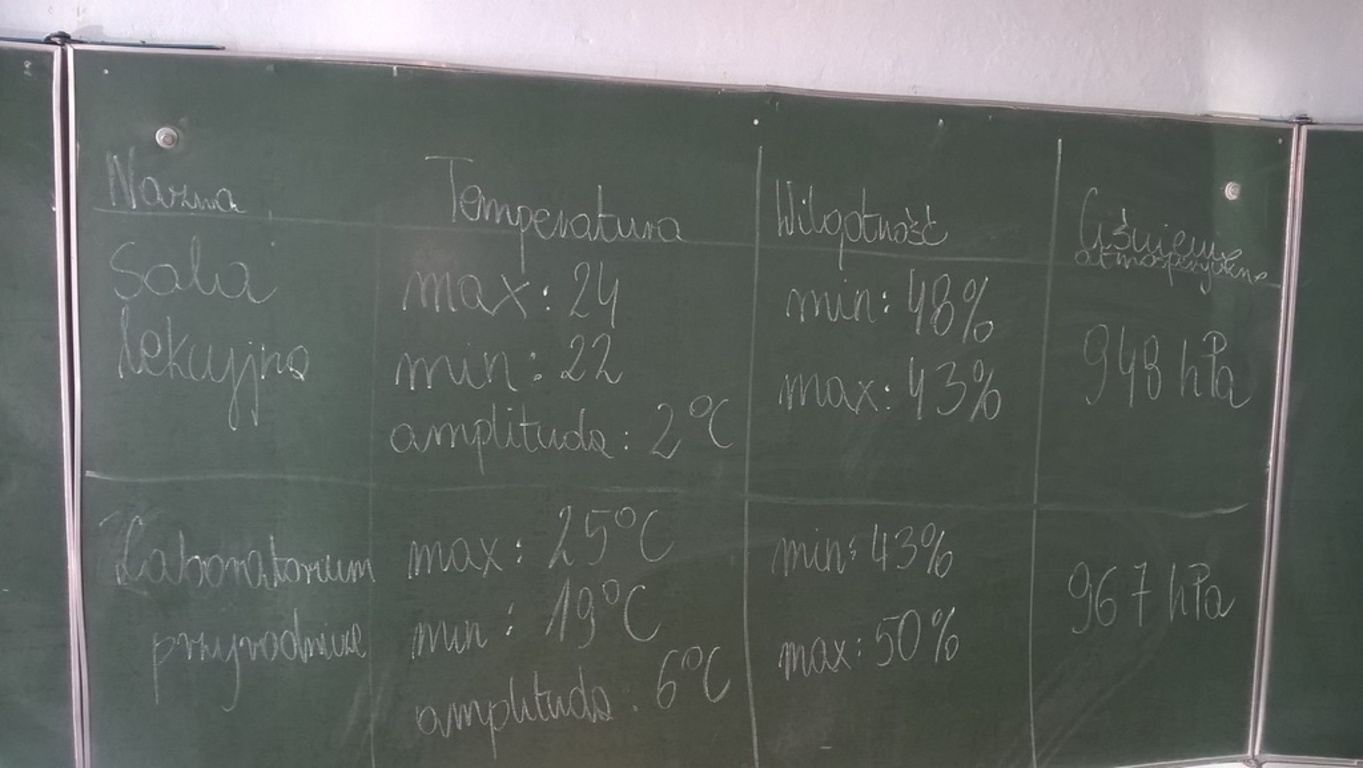 Nazwa Temperatura Wilgotność Ciśnienie
atmosferyczne
Sala
lekcyjna
max: 24
min: 22
amplituda: 2°C
min: 48%
max: 43%
948 hPa
Laboratorium
przyrodnicze
max: 25°C
min: 19°C
amplituda. 6°C
min: 43%
max: 50%
967 hPa